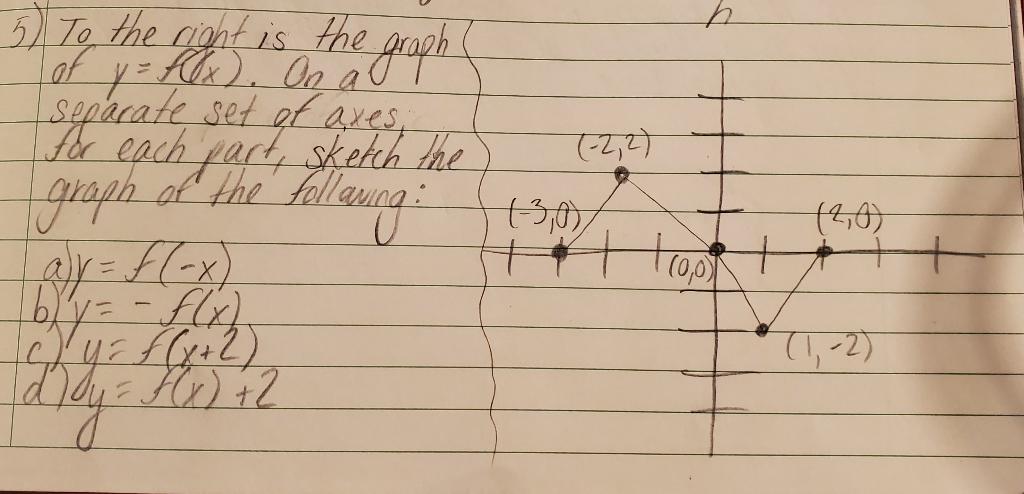 5) To the right is the graph
of y = f(x). On a
separate set of axes,
for each part, sketch the
graph of the following:
a) y = f(-x)
b) y = - f(x)
c) y = f(x+2)
d) y = f(x) +2
h
(-2,2)
(-3,0)
(2,0)
(0,0)
(1,-2)